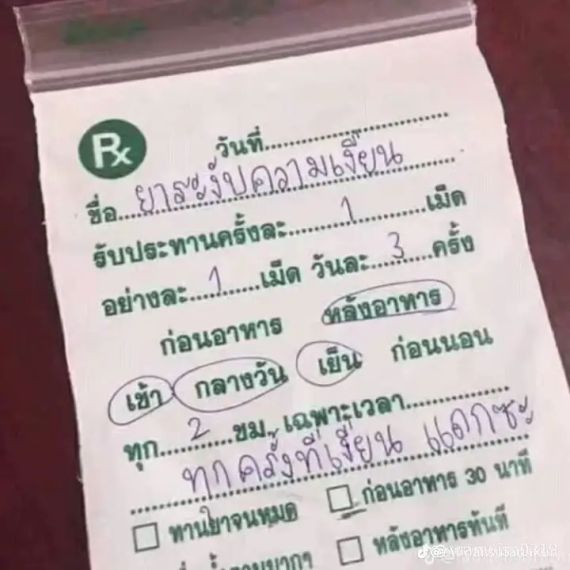 Rx
วันที่
ชื่อ ยาระงับความเงี่ยน
รับประทานครั้งละ 1 เม็ด
อย่างละ 1 เม็ด วันละ 3 ครั้ง
ก่อนอาหาร หลังอาหาร
เช้า กลางวัน เย็น ก่อนนอน
ทุก 2 ชม. เฉพาะเวลา
ทุกครั้งที่เงี่ยน แดกซะ
ก่อนอาหาร 30 นาที
ทานยาจนหมด หลังอาหารทันที